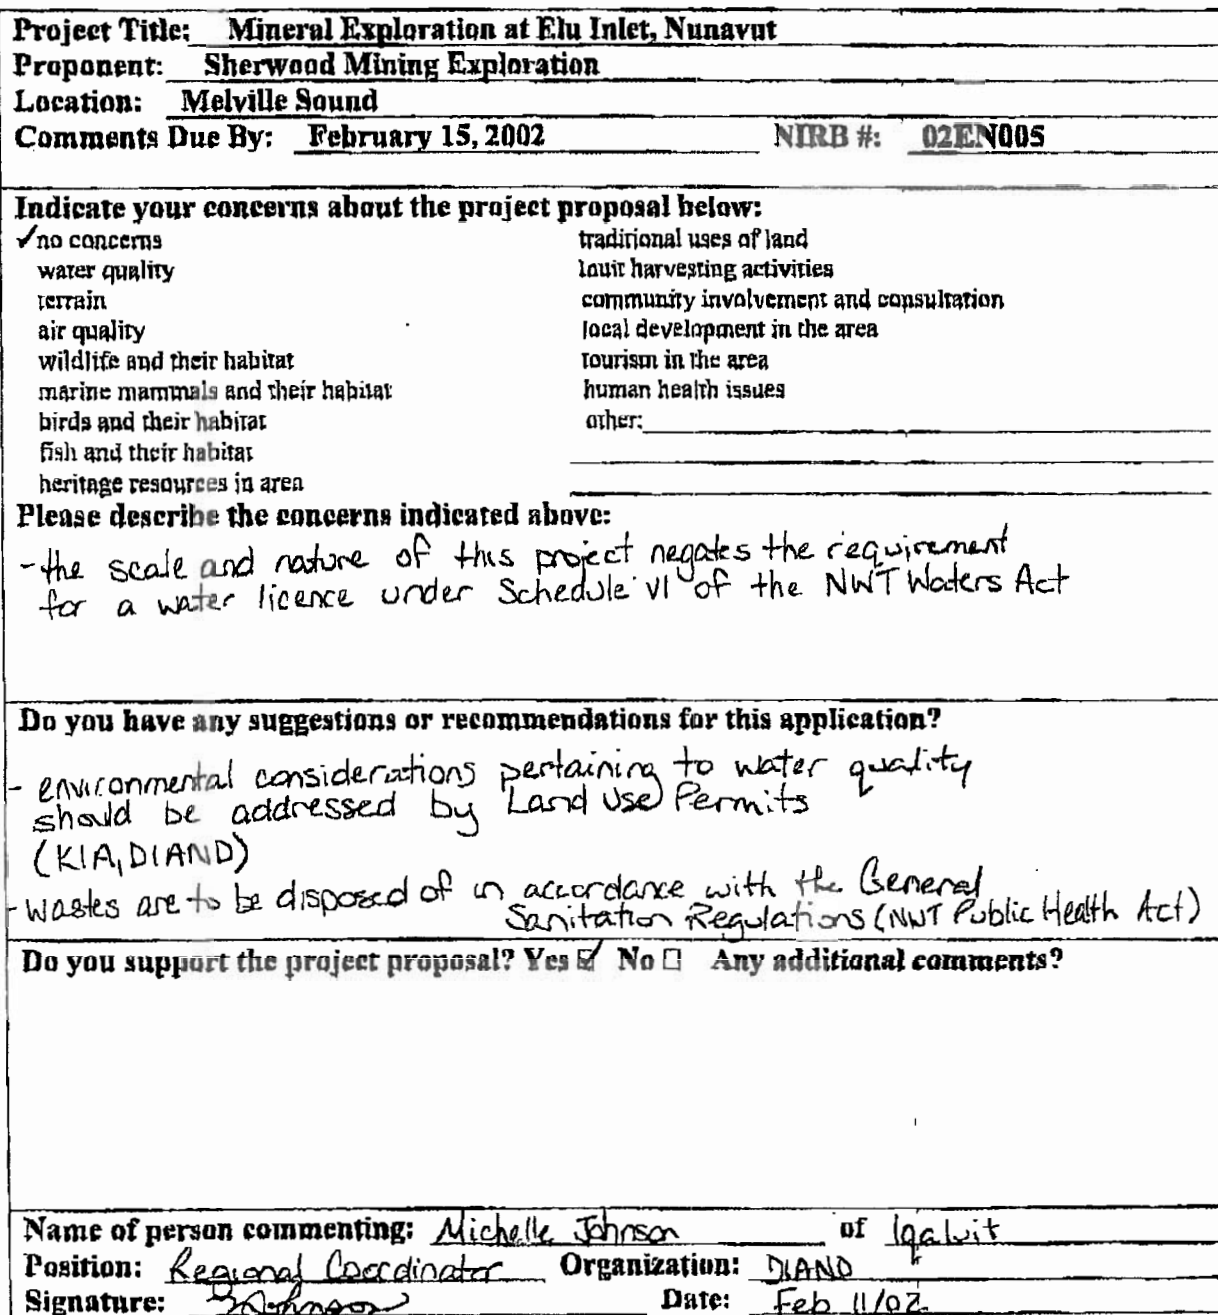 Project Title: Mineral Exploration at Elu Inlet, Nunavut
Proponent: Sherwood Mining Exploration
Location: Melville Sound
Comments Due By: February 15, 2002 NIRB #: 02EN005
Indicate your concerns about the project proposal below:
✓no concerns
water quality
terrain
air quality
wildlife and their habitat
marine mammals and their habitat
birds and their habitat
fish and their habitat
heritage resources in area
traditional uses of land
Inuit harvesting activities
community involvement and consultation
local development in the area
tourism in the area
human health issues
other:
Please describe the concerns indicated above:
- the scale and nature of this project negates the requirement
for a water licence under Schedule VI of the NWT Waters Act
Do you have any suggestions or recommendations for this application?
- environmental considerations pertaining to water quality
should be addressed by Land Use Permits
(KIA, DIAND)
- wastes are to be disposed of in accordance with the General
Sanitation Regulations (NWT Public Health Act)
Do you support the project proposal? Yes ☑ No ☐ Any additional comments?
Name of person commenting: Michelle Johnson of Iqaluit
Position: Regional Coordinator Organization: DIAND
Signature: MJohnson Date: Feb 11/02